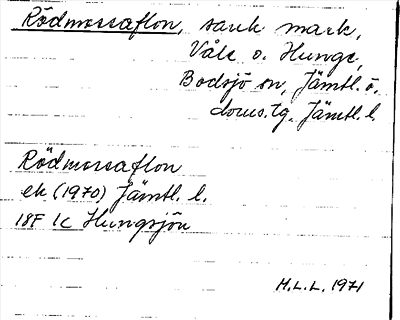 Rödmorsaflon, sank mark,
Våle o. Hunge,
Bodsjö sn, Jämtl. ö.
doms.tg. Jämtl. l.
Rödmorsaflon
ek (1970) Jämtl. l.
18F 1c Hungsjön
H.L.L. 1971